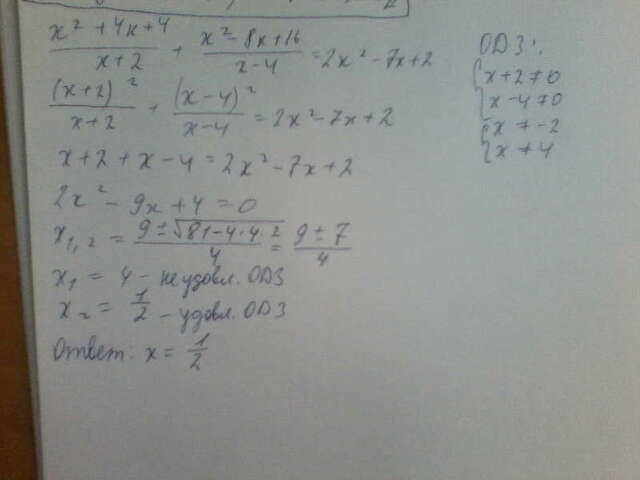 (x² + 4x + 4)/(x + 2) + (x² - 8x + 16)/(x - 4) = 2x² - 7x + 2
(x + 2)²/(x + 2) + (x - 4)²/(x - 4) = 2x² - 7x + 2
x + 2 + x - 4 = 2x² - 7x + 2
2x² - 9x + 4 = 0
x₁,₂ = (9 ± √(81 - 4·4·2))/4 = (9 ± 7)/4
x₁ = 4 - не удовл. ОДЗ
x₂ = 1/2 - удовл. ОДЗ
Ответ: x = 1/2
ОДЗ:
{x + 2 ≠ 0
{x - 4 ≠ 0
{x ≠ -2
{x ≠ 4